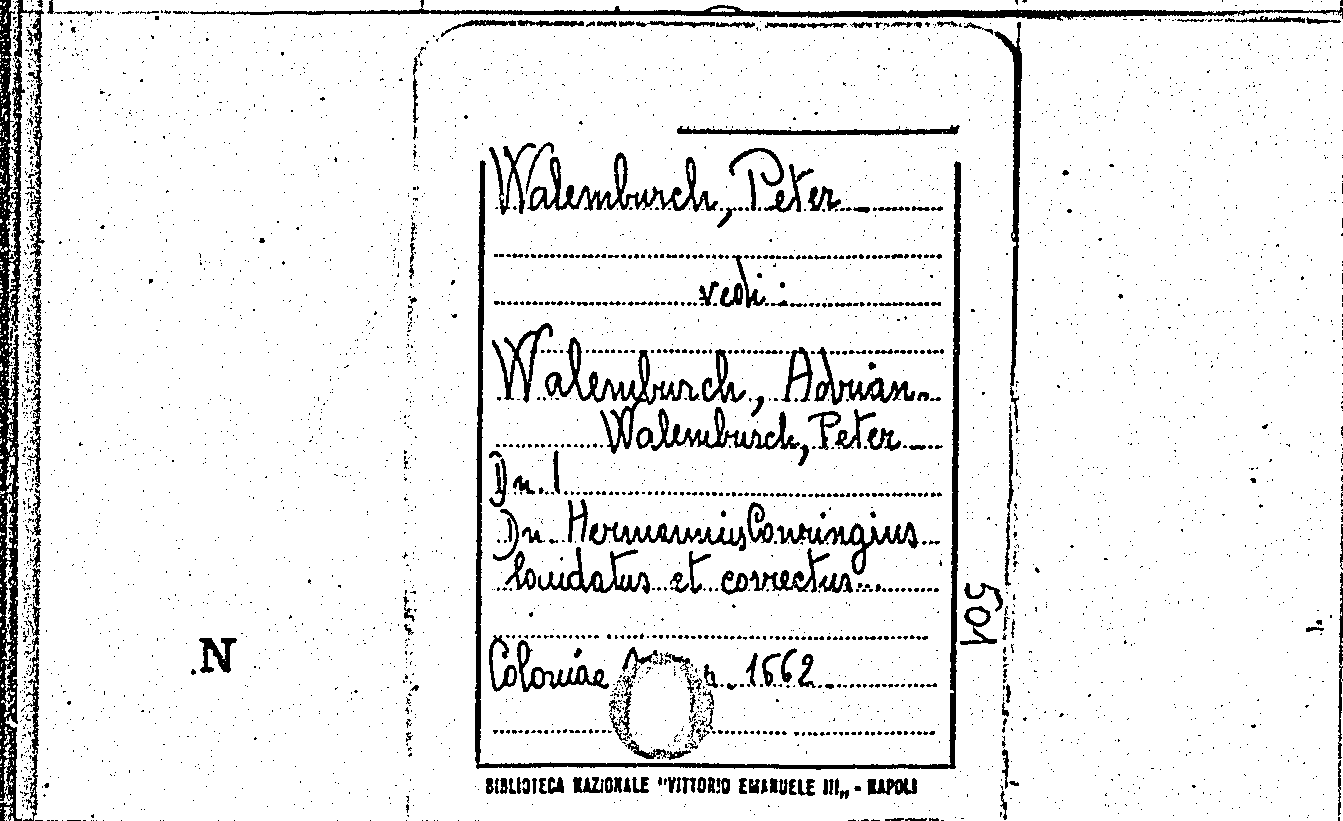 Walemburch, Peter
vedi:
Walemburch, Adrian
Walemburch, Peter
Dn. I
Dn. Hermannus Conringius
laudatus et correctus...
Coloniae 1662
501
N
BIBLIOTECA NAZIONALE "VITTORIO EMANUELE III„ - NAPOLI